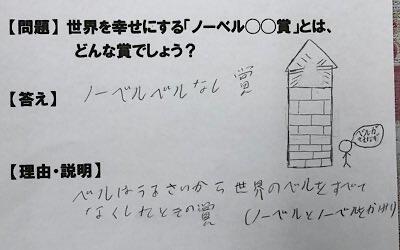 【問題】世界を幸せにする「ノーベル〇〇賞」とは、
どんな賞でしょう？
【答え】ノーベルベルなし賞
ベルが
【理由・説明】
ベルはうるさいから世界のベルをすべて
なくしたとその賞
(ノーベルとノーベルをかけり